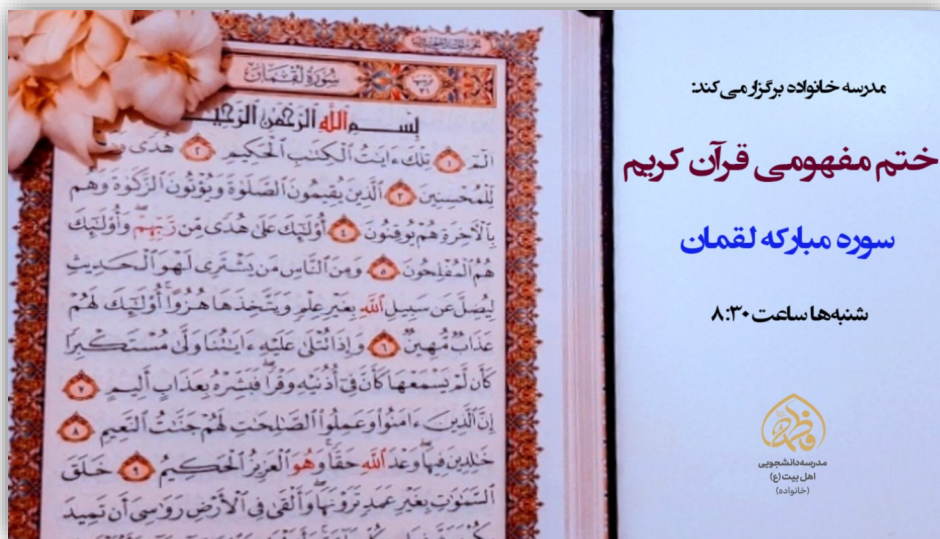 مدرسه خانواده برگزار می‌کند:
ختم مفهومی قرآن کریم
سوره مبارکه لقمان
شنبه‌ها ساعت ۸:۳۰
مدرسه دانشجویی
اهل بیت (ع)
(خانواده)
سُورَةُ لُقْمَان
بِسْمِ ٱللَّهِ ٱلرَّحْمَٰنِ ٱلرَّحِيمِ
الٓمٓ ١ تِلْكَ ءَايَٰتُ ٱلْكِتَٰبِ ٱلْحَكِيمِ ٢ هُدًى
لِّلْمُحْسِنِينَ ٣ ٱلَّذِينَ يُقِيمُونَ ٱلصَّلَوٰةَ وَيُؤْتُونَ ٱلزَّكَوٰةَ وَهُم
بِٱلْأٓخِرَةِ هُمْ يُوقِنُونَ ٤ أُو۟لَٰٓئِكَ عَلَىٰ هُدًى مِّن رَّبِّهِمْ وَأُو۟لَٰٓئِكَ
هُمُ ٱلْمُفْلِحُونَ ٥ وَمِنَ ٱلنَّاسِ مَن يَشْتَرِى لَهْوَ ٱلْحَدِيثِ
لِيُضِلَّ عَن سَبِيلِ ٱللَّهِ بِغَيْرِ عِلْمٍ وَيَتَّخِذَهَا هُزُوًا أُو۟لَٰٓئِكَ لَهُمْ
عَذَابٌ مُّهِينٌ ٦ وَإِذَا تُتْلَىٰ عَلَيْهِ ءَايَٰتُنَا وَلَّىٰ مُسْتَكْبِرًا
كَأَن لَّمْ يَسْمَعْهَا كَأَنَّ فِىٓ أُذُنَيْهِ وَقْرًا فَبَشِّرْهُ بِعَذَابٍ أَلِيمٍ ٧
إِنَّ ٱلَّذِينَ ءَامَنُوا۟ وَعَمِلُوا۟ ٱلصَّٰلِحَٰتِ لَهُمْ جَنَّٰتُ ٱلنَّعِيمِ ٨
خَٰلِدِينَ فِيهَا وَعْدَ ٱللَّهِ حَقًّا وَهُوَ ٱلْعَزِيزُ ٱلْحَكِيمُ ٩ خَلَقَ
ٱلسَّمَٰوَٰتِ بِغَيْرِ عَمَدٍ تَرَوْنَهَا وَأَلْقَىٰ فِى ٱلْأَرْضِ رَوَٰسِىَ أَن تَمِيدَ